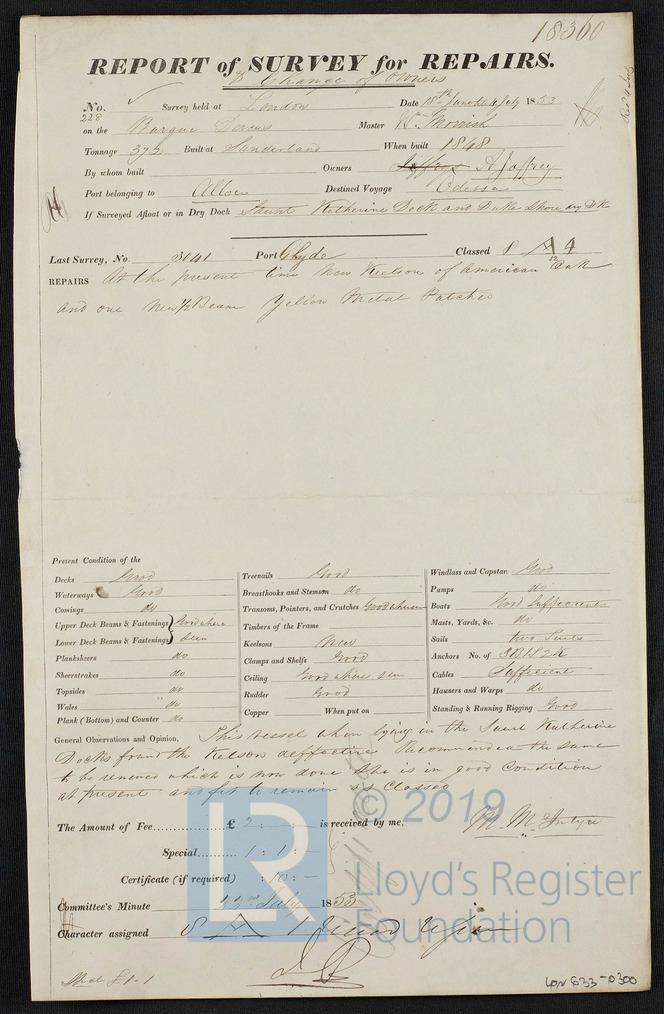 18360
REPORT of SURVEY for REPAIRS.
Change of Owners
No. 228 Survey held at London Date 18th June to 4 July 1853
on the Barque Dorcas Master Wm. Morrish
Tonnage 372 Built at Sunderland When built 1848
By whom built Owners Jaffrys A Jaffrey
Port belonging to Alloa Destined Voyage Odessa
If Surveyed Afloat or in Dry Dock Saint Katherine Dock and Duke Shore dry Dk
Last Survey, No. 3041 Port Clyde Classed 8 A 4
12
REPAIRS At the present time New Keelson of American Oak
and one New 1/2 Beam Yellow Metal Patched
Present Condition of the
Decks Good
Waterways Good
Comings do
Upper Deck Beams & Fastenings } Good where
Lower Deck Beams & Fastenings } Seen
Planksheers do
Sheerstrakes do
Topsides do
Wales do
Plank (Bottom) and Counter do
Treenails Good
Breasthooks and Stemson do
Transoms, Pointers, and Crutches Good where seen
Timbers of the Frame
Keelsons New
Clamps and Shelfs Good
Ceiling Good where seen
Rudder Good
Copper When put on
Windlass and Capstan Good
Pumps do
Boats Good Sufficient
Masts, Yards, &c. do
Sails two Suits
Anchors No. of 3B 1S 2K
Cables Sufficient
Hawsers and Warps do
Standing & Running Rigging Good
General Observations and Opinion, This vessel when lying in the Saint Katherine
Docks found the Kelson deffective Recommended the same
to be renewed which is now done She is in good Condition
at present and fit to remain as Classed
The Amount of Fee £ 2 : is received by me,
M. McIntyre
Special 1 : 1 : -
Certificate (if required) : 10 : -
Committee's Minute 22nd July 1853
Character assigned 8 A 1
Spec £1-1
LON 633-0300
© 2019
LR
Lloyd's Register
Foundation